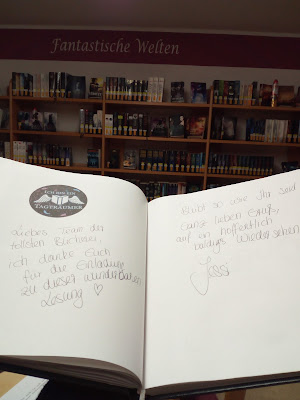 Fantastische Welten
Ich bin ein
TAGTRÄUMER
Liebes Team der
tollsten Bücherei,
ich danke Euch
für die Einladung
zu dieser wunderbaren
Lesung ♡
Bleibt so wie Ihr seid
Ganz lieben Gruß,
auf ein hoffentlich
baldiges Wiedersehen
Jessi